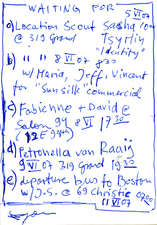 WAITING FOR
5 VI 07
a) Location Scout Sasha 10
@ 319 Grand Tsyrlin
"Identity"
b) " " 8 VI 07 8
w/ Maria, Jeff, Vincent
for "Sunsilk" commercial
c) Fabienne + David @
Salon 94 8 VI 17 30
(12 E 94)
d) Petronella van Raaij
9 VI 07 319 Grand
e) departure bus to Boston
w/ J.S. @ 69 Christie
11 VI 07